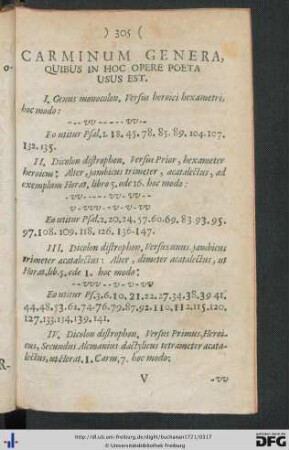 ) 305 (
CARMINUM GENERA,
QUIBUS IN HOC OPERE POETA
USUS EST.
I. Genus monocolon, Versus heroici hexametri,
hoc modo:
Eo utitur Psal. 1. 18. 45. 78. 85. 89. 104. 107.
132. 135.
II. Dicolon distrophon, Versus Prior, hexameter
heroicus: Alter, jambicus trimeter, acatalectus, ad
exemplum Horat, libro 5. ode 16. hoc modo:
Eo utitur Psal. 2. 20. 24. 57. 60. 69. 83. 93. 95.
97. 108. 109. 118. 126. 136. 147.
III. Dicolon distrophon, Versus unus, jambicus
trimeter acatalectus: Alter, dimeter acatalectus, ut
Horat. lib. 5. ode 1. hoc modo:
Eo utitur Ps. 3. 6. 10. 21. 22. 27. 34. 38. 39 41.
44. 48. 53. 62. 74. 76. 79. 87. 92. 110. 112. 115. 120.
127. 133. 134. 139. 141.
IV. Dicolon distrophon, Versus Primus, Heroi-
cus, Secundus Alcmanius dactylicus tetrameter acata-
lectus, ut Horat. 1. Carm. 7. hoc modo:
V
http://dl.ub.uni-freiburg.de/diglit/buchanan1721/0317
© Universitätsbibliothek Freiburg
gefördert durch die
DFG